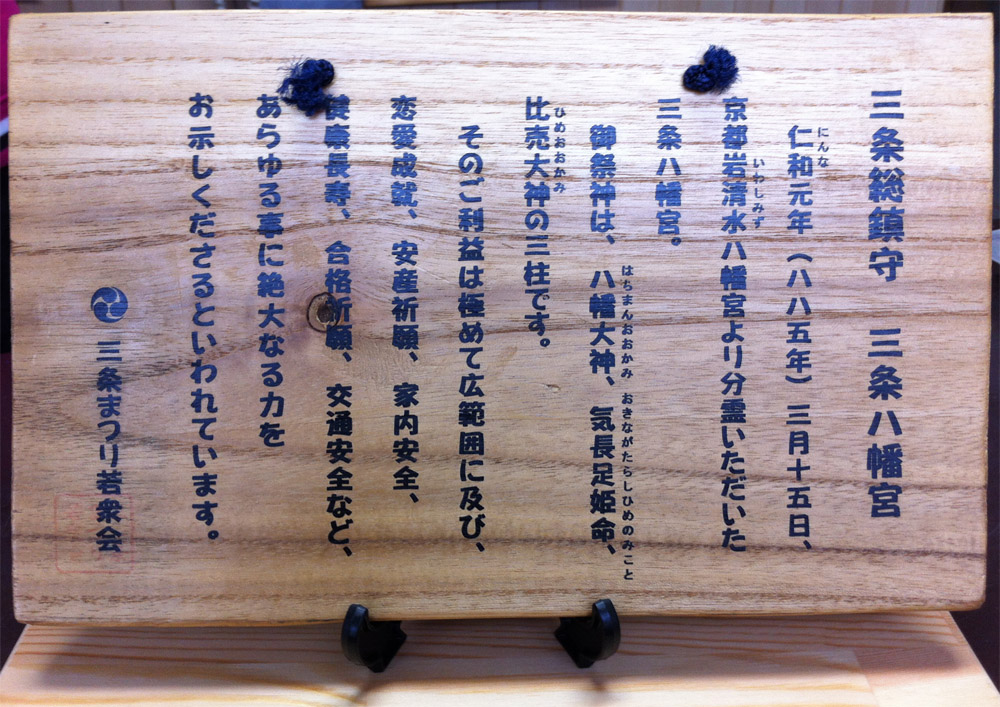 三条総鎮守　三条八幡宮
仁和元年（八八五年）三月十五日、
にんな
京都岩清水八幡宮より分霊いただいた
いわしみず
三条八幡宮。
御祭神は、八幡大神、気長足姫命、
はちまんおおかみ　おきながたらしひめのみこと
比売大神の三柱です。
ひめおおかみ
そのご利益は極めて広範囲に及び、
恋愛成就、安産祈願、家内安全、
健康長寿、合格祈願、交通安全など、
あらゆる事に絶大なる力を
お示しくださるといわれています。
三条まつり若衆会